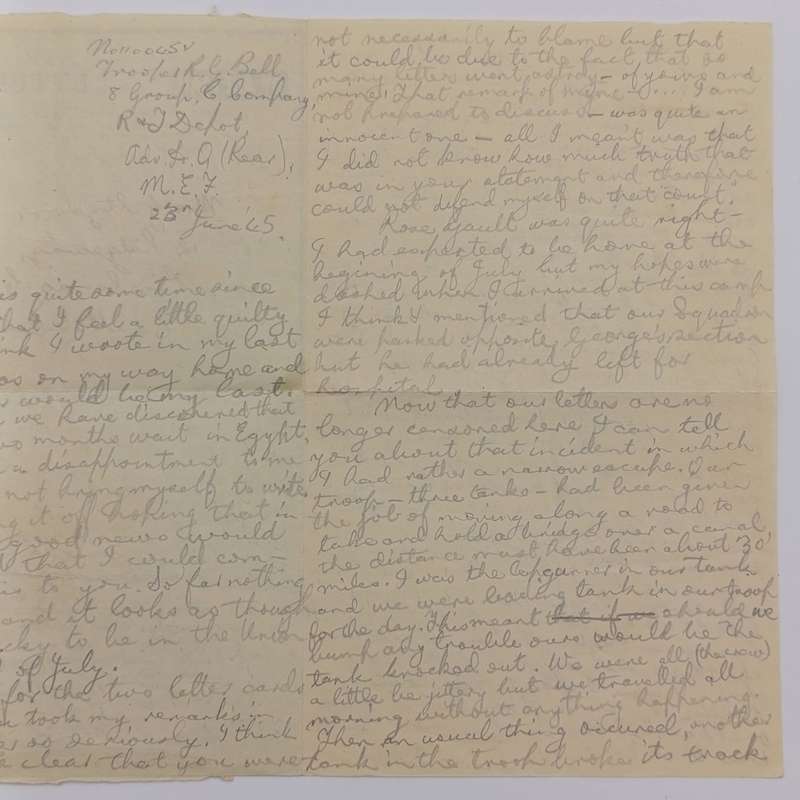 No110065V
Trooper R. C. Ball
8 Group, C Company,
R & T Depot,
Adv. Dr. Q (Rear),
M. E. F
23rd June '45.
is quite some time since
that I feel a little guilty
ink I wrote in my last
as on my way home and
s would be my last.
we have discovered that
wo months wait in Egypt,
a disappointment to me
not bring myself to write.
ng it off hoping that in
good news would
that I could com-
is to you. So far nothing
and it looks as though
cky to be in the Union
of July.
for the two letter cards
took my remarks in
er so seriously. I think
e clear that you were
not necessarily to blame but that
it could be due to the fact that so
many letters went astray – of yours and
mine. That remark of mine – "... I am
not prepared to discuss – was quite an
innocent one – all I meant was that
I did not know how much truth that
was in your statement and therefore
could not defend myself on that "count".
Rose Gault was quite right –
I had expected to be home at the
begining of July but my hopes were
dashed when I arrived at this camp
I think I mentioned that our Squadron
were parked opposite George's section
but he had already left for
hospital.
Now that our letters are no
longer censored here I can tell
you about that incident in which
I had rather a narrow escape. Our
troop – three tanks – had been given
the job of moving along a road to
take and hold a bridge over a canal,
the distance must have been about 30
miles. I was the lapgunner in our tank
and we were leading tank in our troop
for the day. This meant that if we should we
bump any trouble ours would be the
tank knocked out. We were all (the crew)
a little be jittery but we travelled all
morning without anything happening.
Then an usual thing occured, another
tank in the troop broke its track